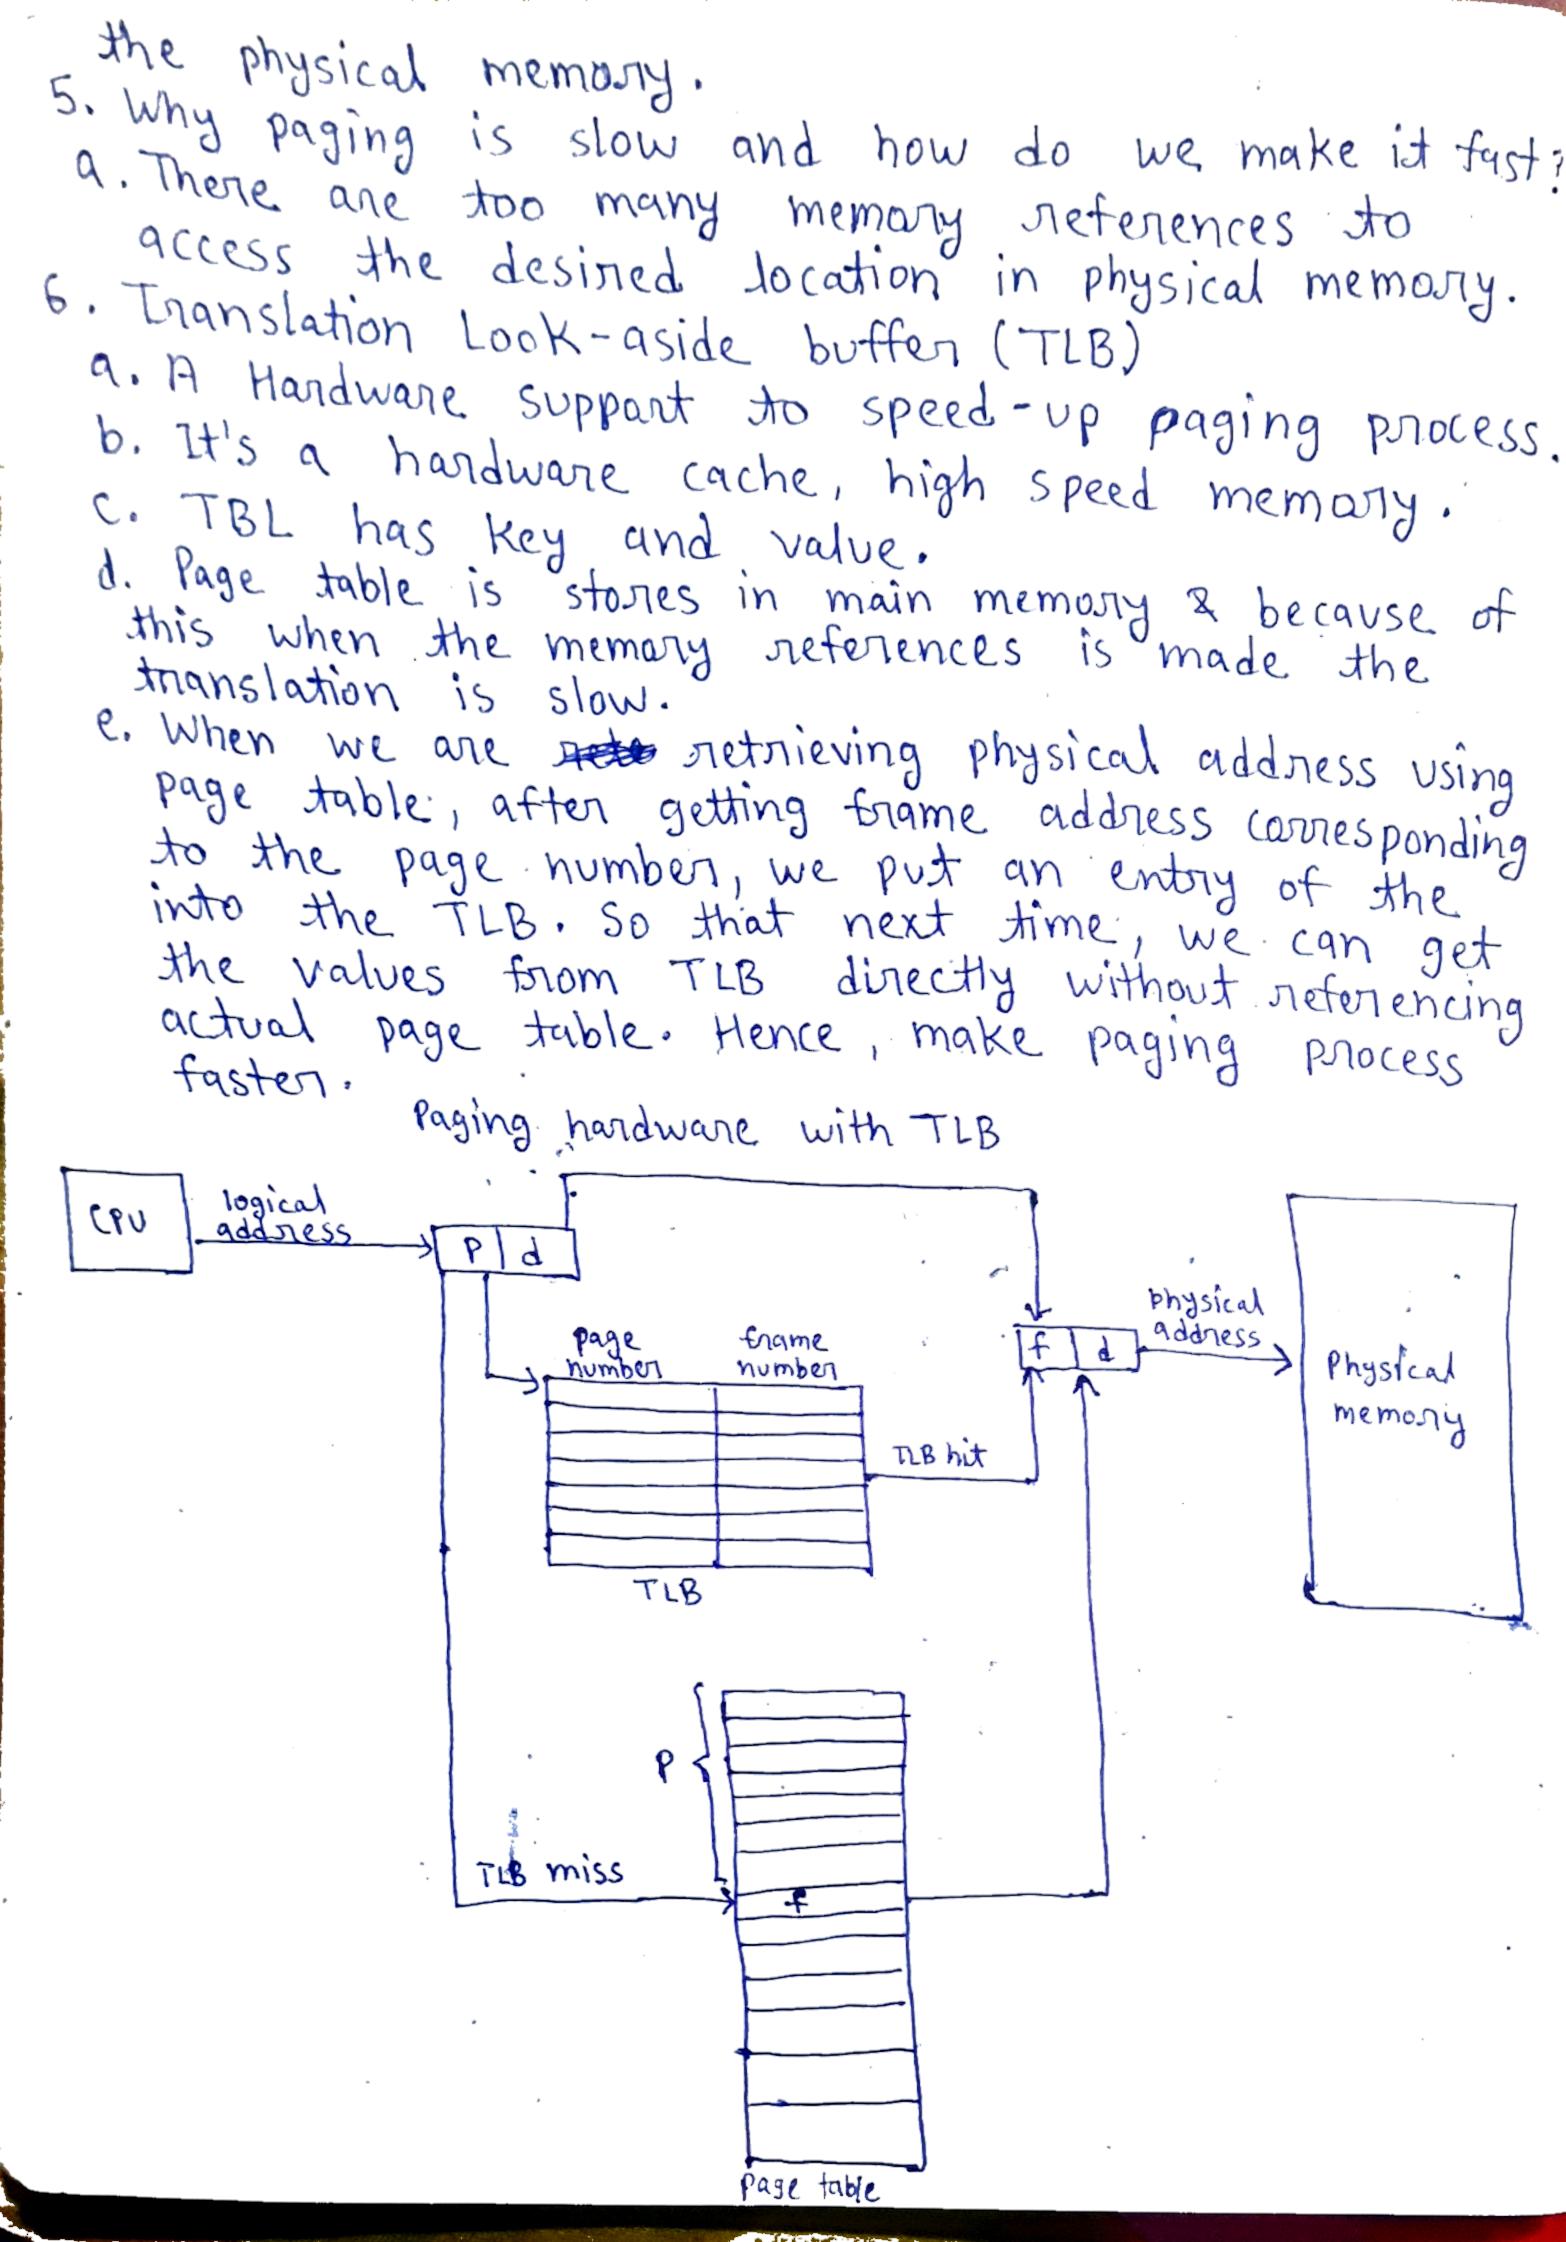 the physical memory.
5. Why paging is slow and how do we make it fast?
a. There are too many memory references to
access the desired location in physical memory.
6. Translation Look-aside buffer (TLB)
a. A Hardware support to speed-up paging process.
b. It's a hardware cache, high speed memory.
c. TBL has key and value.
d. Page table is stores in main memory & because of
this when the memory references is made the
translation is slow.
e. When we are retrieving physical address using
page table, after getting frame address corresponding
to the page number, we put an entry of the
into the TLB. So that next time, we can get
the values from TLB directly without referencing
actual page table. Hence, make paging process
faster.
Paging hardware with TLB
CPU
logical
address
p d
page
number
frame
number
TLB hit
TLB
f d
physical
address
Physical
memory
P
TLB miss
f
page table